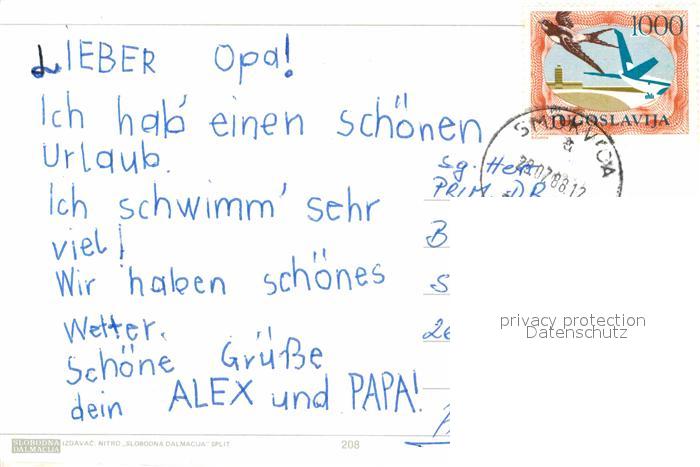 LIEBER Opa!
Ich hab' einen schönen
Urlaub.
Ich schwimm' sehr
viel!
Wir haben schönes
Wetter.
Schöne Grüße
dein ALEX und PAPA!
1000
JUGOSLAVIJA
SMOKVICA
Sg. Herr
PRIM. DR
B
S
privacy protection
Datenschutz
SLOBODNA
DALMACIJA
IZDAVAČ: NITRO „SLOBODNA DALMACIJA" SPLIT
208